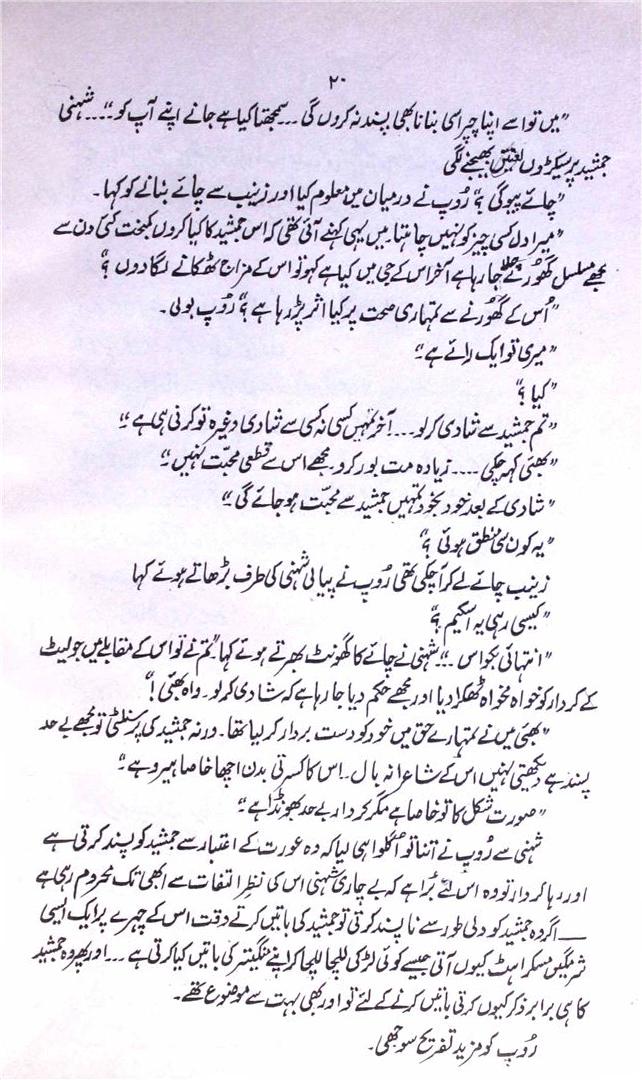 ۲۰
"میں تو اسے اپنا چپراسی بنانا بھی پسند نہ کروں گی ۔۔ سمجھتا کیا ہے جانے اپنے آپ کو"۔۔۔ شہنی
جمشید پر سیکڑوں لعنتیں بھیجنے لگی
"چائے پیوگی ؟" رُوپ نے درمیان میں معلوم کیا اور زینب سے چائے بنانے کو کہا۔
"میرا دل کسی چیز کو نہیں چاہتا۔ میں یہی کہنے آئی تھی کہ اس جمشید کا کیا کروں کمبخت کئی دن سے
مجھے مسلسل گھُورتے چلا جا رہا ہے آخر اس کے جی میں کیا ہے کہو تو اس کے مزاج ٹھکانے لگا دوں ؟"
"اُس کے گھُورنے سے تمہاری صحت پر کیا اثر پڑ رہا ہے ؟" رُوپ بولی۔
"میری تو ایک رائے ہے۔"
"کیا ؟"
"تم جمشید سے شادی کرلو۔۔۔ آخر تمہیں کسی نہ کسی سے شادی وغیرہ تو کرنی ہی ہے۔"
"بھئی کہہ چکی ۔۔۔۔ زیادہ مت بور کرو۔ مجھے اس سے قطعی محبّت نہیں۔"
"شادی کے بعد خود بخود تمہیں جمشید سے محبّت ہو جائے گی۔"
"یہ کون سی منطق ہوئی ؟"
زینب چائے لے کر آ چکی تھی رُوپ نے پیالی شہنی کی طرف بڑھاتے ہوئے کہا
"کیسی رہی یہ اسکیم ؟"
"انتہائی بکواس۔" شہنی نے چائے کا گھونٹ بھرتے ہوئے کہا "تم نے تو اس کے مقابلے میں جولیٹ
کے کردار کو خواہ مخواہ ٹھکرا دیا اور مجھے حکم دیا جا رہا ہے کہ شادی کرلو۔ واہ بھئی !"
"بھئی میں نے تمہارے حق میں خود کو دست بردار کر لیا تھا۔ ورنہ جمشید کی پرسنلٹی تو مجھے بے حد
پسند ہے دیکھتی نہیں اس کے شاعرانہ بال۔ اس کا کسرتی بدن اچھا خاصا ہیرو ہے۔"
"صورت شکل کا تو خاصا ہے مگر کردار بے حد بھونڈا ہے۔"
شہنی سے رُوپ نے اتنا تو اُگلوا ہی لیا کہ وہ عورت کے اعتبار سے جمشید کو پسند کرتی ہے
اور رہا کردار تو وہ اس لئے بُرا ہے کہ بے چاری شہنی اس کی نظرِ التفات سے ابھی تک محروم رہی ہے
—— اگر وہ جمشید کو دلی طور سے ناپسند کرتی تو جمشید کی باتیں کرتے وقت اس کے چہرے پر ایک ایسی
شرمگیں مسکراہٹ کیوں آتی جیسے کوئی لڑکی للچا للچا کر اپنے منگیتر کی باتیں کیا کرتی ہے ۔۔۔ اور پھر وہ جمشید
کا ہی برابر ذکر کیوں کرتی باتیں کرنے کے لئے تو اور بھی بہت سے موضوع تھے۔
رُوپ کو مزید تفریح سوجھی۔